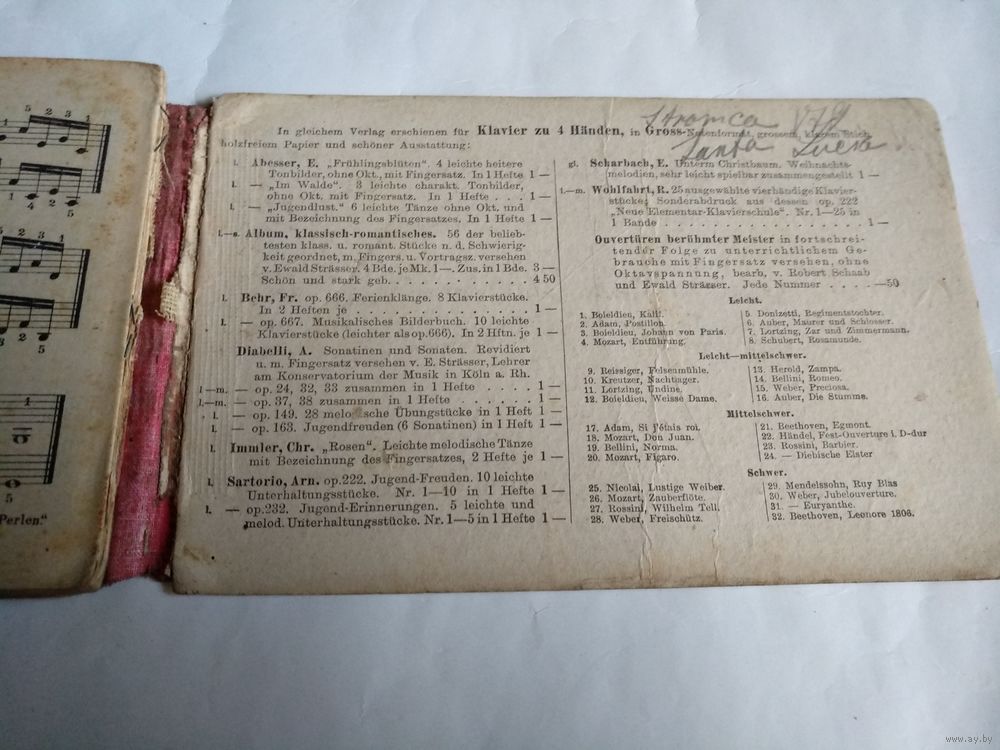 5 2 3 1
5 2 3 1
1 2
4 2 5
Perlen."
Stronica
Santa Lucia
In gleichem Verlag erschienen für Klavier zu 4 Händen, in Gross-Notenformat, grossem, klarem Stich,
holzfreiem Papier und schöner Ausstattung:
l. Abesser, E. „Frühlingsblüten". 4 leichte heitere
Tonbilder, ohne Okt., mit Fingersatz. In 1 Hefte 1 —
l. — „Im Walde". 3 leichte charakt. Tonbilder,
ohne Okt. mit Fingersatz. In 1 Hefte . . . 1 —
l. — „Jugendlust." 6 leichte Tänze ohne Okt. und
mit Bezeichnung des Fingersatzes. In 1 Hefte 1 —
l.—s. Album, klassisch-romantisches. 56 der belieb-
testen klass. u. romant. Stücke n. d. Schwierig-
keit geordnet, m. Fingers. u. Vortragsz. versehen
v. Ewald Strässer. 4 Bde. je Mk. 1—. Zus. in 1 Bde. 3 —
Schön und stark geb. . . . . . . . . . . 4 50
l. Behr, Fr. op. 666. Ferienklänge. 8 Klavierstücke.
In 2 Heften je . . . . . . . . . . . . 1 —
l. — op. 667. Musikalisches Bilderbuch. 10 leichte
Klavierstücke (leichter als op. 666). In 2 Hftn. je 1 —
Diabelli, A. Sonatinen und Sonaten. Revidiert
u. m. Fingersatz versehen v. E. Strässer, Lehrer
am Konservatorium der Musik in Köln a. Rh.
l—m. — op. 24, 32, 33 zusammen in 1 Hefte . . . . 1 —
l.—m. — op. 37, 38 zusammen in 1 Hefte . . . . . 1 —
l. — op. 149. 28 melodische Übungstücke in 1 Heft 1 —
l. — op. 163. Jugendfreuden (6 Sonatinen) in 1 Heft 1 —
l. Immler, Chr. „Rosen". Leichte melodische Tänze
mit Bezeichnung des Fingersatzes, 2 Hefte je 1 —
l. Sartorio, Arn. op. 222. Jugend-Freuden. 10 leichte
Unterhaltungsstücke. Nr. 1—10 in 1 Hefte 1 —
l. — op. 232. Jugend-Erinnerungen. 5 leichte und
melod. Unterhaltungsstücke. Nr. 1—5 in 1 Hefte 1 —
gl. Scharbach, E. Unterm Christbaum. Weihnachts-
melodien, sehr leicht spielbar zusammengestellt 1 —
l.—m. Wohlfahrt, R. 25 ausgewählte vierhändige Klavier-
stücke, Sonderabdruck aus dessen op. 222
„Neue Elementar-Klavierschule". Nr. 1—25 in
1 Bande . . . . . . . . . . . . . . 1 —
Ouvertüren berühmter Meister in fortschrei-
tender Folge zu unterrichtlichem Ge-
brauche mit Fingersatz versehen, ohne
Oktavspannung, bearb. v. Robert Schaab
und Ewald Strässer. Jede Nummer . . . . —50
Leicht.
1. Boieldieu, Kalif.
2. Adam, Postillon.
3. Boieldieu, Johann von Paris.
4. Mozart, Entführung.
5. Donizetti, Regimentstochter.
6. Auber, Maurer und Schlosser.
7. Lortzing, Zar und Zimmermann.
8. Schubert, Rosamunde.
Leicht—mittelschwer.
9. Reissiger, Felsenmühle.
10. Kreutzer, Nachtlager.
11. Lortzing, Undine.
12. Boieldieu, Weisse Dame.
13. Herold, Zampa.
14. Bellini, Romeo.
15. Weber, Preciosa.
16. Auber, Die Stumme.
Mittelschwer.
17. Adam, Si j'étais roi.
18. Mozart, Don Juan.
19. Bellini, Norma.
20. Mozart, Figaro.
21. Beethoven, Egmont.
22. Händel, Fest-Ouverture i. D-dur
23. Rossini, Barbier.
24. — Diebische Elster
Schwer.
25. Nicolai, Lustige Weiber.
26. Mozart, Zauberflöte.
27. Rossini, Wilhelm Tell.
28. Weber, Freischütz.
29. Mendelssohn, Ruy Blas
30. Weber, Jubelouverture.
31. — Euryanthe.
32. Beethoven, Leonore 1806.
www.ay.by